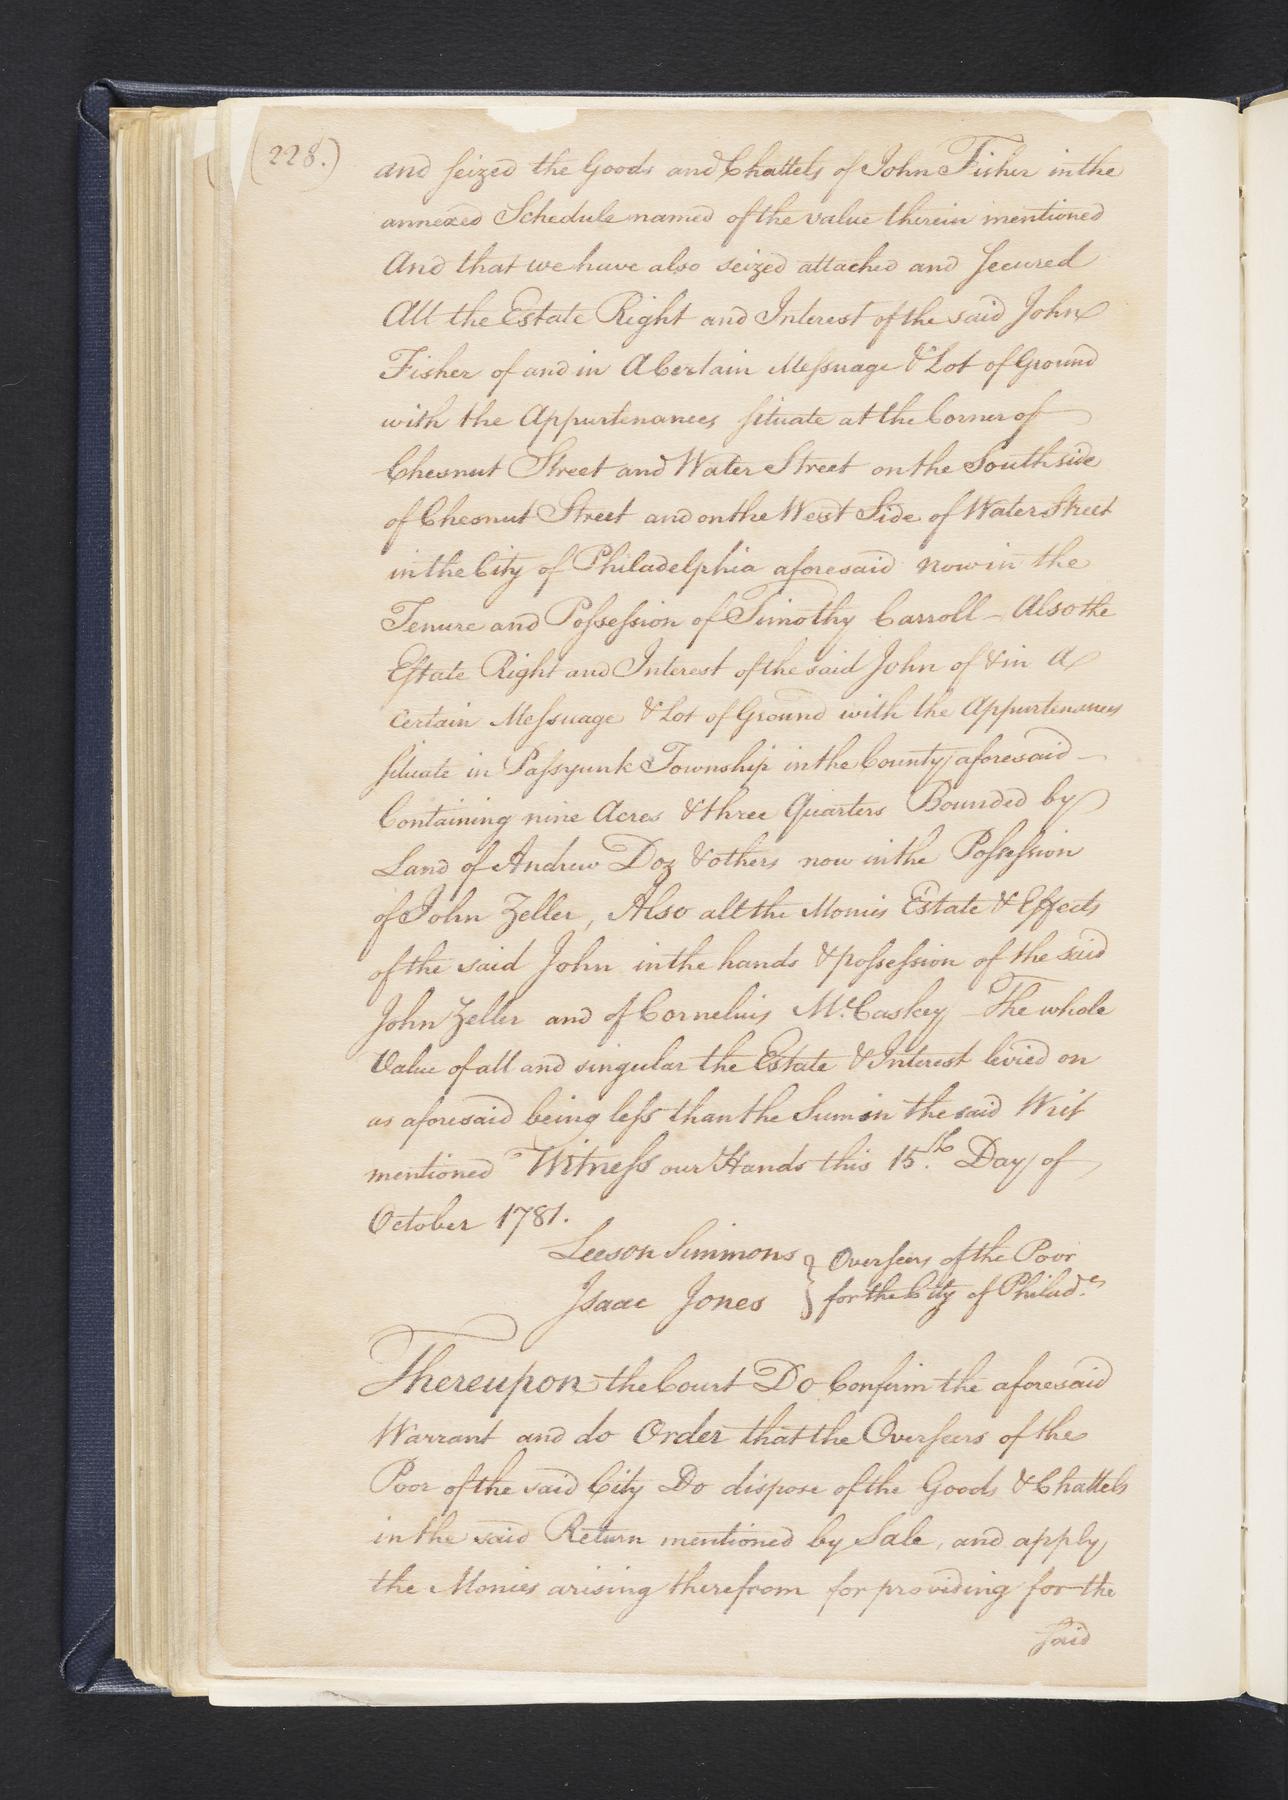 (228.)
and seized the Goods and Chattels of John Fisher in the
annexed Schedule named of the value therein mentioned
And that we have also seized attached and Secured
All the Estate Right and Interest of the said John
Fisher of and in A Certain Messuage & Lot of Ground
with the Appurtenances Situate at the Corner of
Chesnut Street and Water Street on the South side
of Chesnut Street and on the West Side of Water Street
in the City of Philadelphia aforesaid now in the
Tenure and Possession of Timothy Carroll – Also the
Estate Right and Interest of the said John of & in A
Certain Messuage & Lot of Ground with the Appurtenances
Situate in Passyunk Township in the County aforesaid –
Containing nine Acres & three Quarters Bounded by
Land of Andrew Doz & others now in the Possession
of John Zeller, Also all the Monies Estate & Effects
of the said John in the hands & possession of the said
John Zeller and of Cornelius McCaskey – The whole
Value of all and singular the Estate & Interest levied on
as aforesaid being less than the Sum in the said Writ
mentioned Witness our Hands this 15.th Day of
October 1781.
Leeson Simmons } Overseers of the Poor
Isaac Jones } for the City of Philad.a
Thereupon the Court Do Confirm the aforesaid
Warrant and do Order that the Overseers of the
Poor of the said City Do dispose of the Goods & Chattels
in the said Return mentioned by Sale, and apply
the Monies arising therefrom for providing for the
said